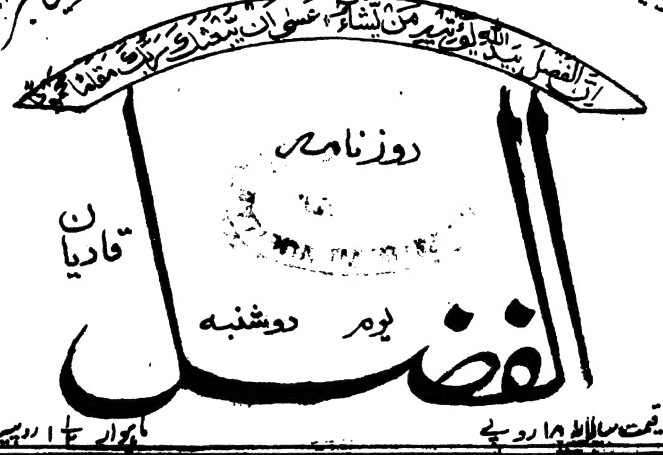 ان الفضل بید اللہ یؤتیہ من یشاء عسٰی ان یبعثک ربک مقاما محمودا
روزنامہ
قادیان
یوم دوشنبہ
الفضل
قیمت سالانہ ۱۸ روپے
ماہوار ۱ روپیہ